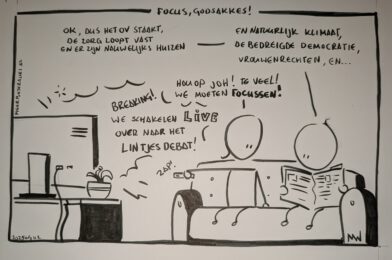 FOCUS, GODSAKKES!
OK, DUS HET OV STAAKT,
DE ZORG LOOPT VAST
EN ER ZIJN NAUWELIJKS HUIZEN
EN NATUURLIJK KLIMAAT,
DE BEDREIGDE DEMOCRATIE,
VROUWENRECHTEN, EN...
HOU OP JOH! TE VEEL!
WE MOETEN FOCUSSEN!
BREAKING!
WE SCHAKELEN LIVE
OVER NAAR HET
LINTJESDEBAT!
ZAP!
MW